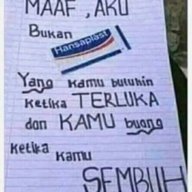 MAAF, AKU
Bukan
Hansaplast
Yang kamu butuhin
ketika TERLUKA
dan KAMU buang
ketika kamu
SEMBUH